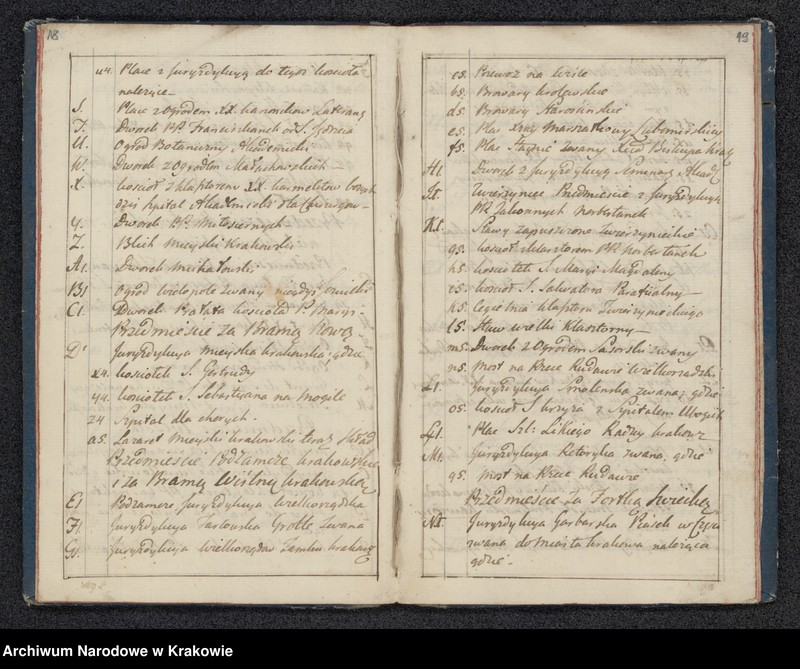 18
u4. Place z Juryzdykcyą do tegoż kościoła
należące —
S. Plac z Ogrodem XX. kanoników Lakrang
T. Dworek PP. Franciszkanek od S. Jędrzeia
U. Ogród Botaniczny Akademicki
W. Dworek z Ogrodem Małachowskich —
X. kościół z klasztorem XX. karmelitów bosych
dziś szpital Akademicki dla Chorych —
Y. Dworek PP. Miłosiernych
Z. Blich Mieyski Krakowski
A1. Dworek Michałowski
B1 Ogród wielopole zwany niegdyś
C1. Dworek Prałata kościoła P. Maryi —
Przedmieście za Bramą Nową —
D1 Juryzdykcya Mieyska krakowska, gdzie
x4. kościołek S. Gertrudy
y4. kościołek S. Sebastyana na Mogile
z4 Szpital dla chorych —
a5. Lazaret Mieyski krakowski teraz Skład
Przedmieście Podzamcze krakowskie
i za Bramą Wiślną krakowską
E1 Podzamcze Juryzdykcya Wielkorządzka
F1 Juryzdykcya Tarłowska Groble zwana
G1. Juryzdykcya Wielkorządów Zamku krakow:
19
c5. Przewoz na Wiśle
b5. Browary królewskie
d5. Browary Starościńskie
e5. Plac Xcia Marszałkowy Lubomirskiey
f5. Plac zwany Xcia Biskupa krak
H1. Dworek z Juryzdykcyą Seminar: Akad:
I1. Zwierzyniec Przedmieście z Juryzdykcyą
PP. Zakonnych Norbertanek
K1. Stawy zapuszczone Zwierzynieckie
g5. kościół z klasztorem PP. Norbertanek
h5. kościołek S. Maryi Magdaleny
i5. kościół S. Salwatora Parafialny —
k5. Cegielnia klasztoru Zwierzynieckiego
l5. Staw wielki klasztorny —
m5. Dworek z Ogrodem zwany
n5. Most na Rzece Rudawie Wielkorządzki
L1. Juryzdykcya Smoleńska zwana, gdzie
o5. kościół S. krzyża z Szpitalem Ubogich
Ł1. Plac Szl: Likiego Radzcy krakow:
M1. Juryzdykcya Retoryka zwana, gdzie
q5. Most na Rzece Rudawie
Przedmieście za Fortką Szewską
N1. Juryzdykcya Garbarska Piasek w części
zwana do Miasta krakowa należąca
gdzie —
Archiwum Narodowe w Krakowie